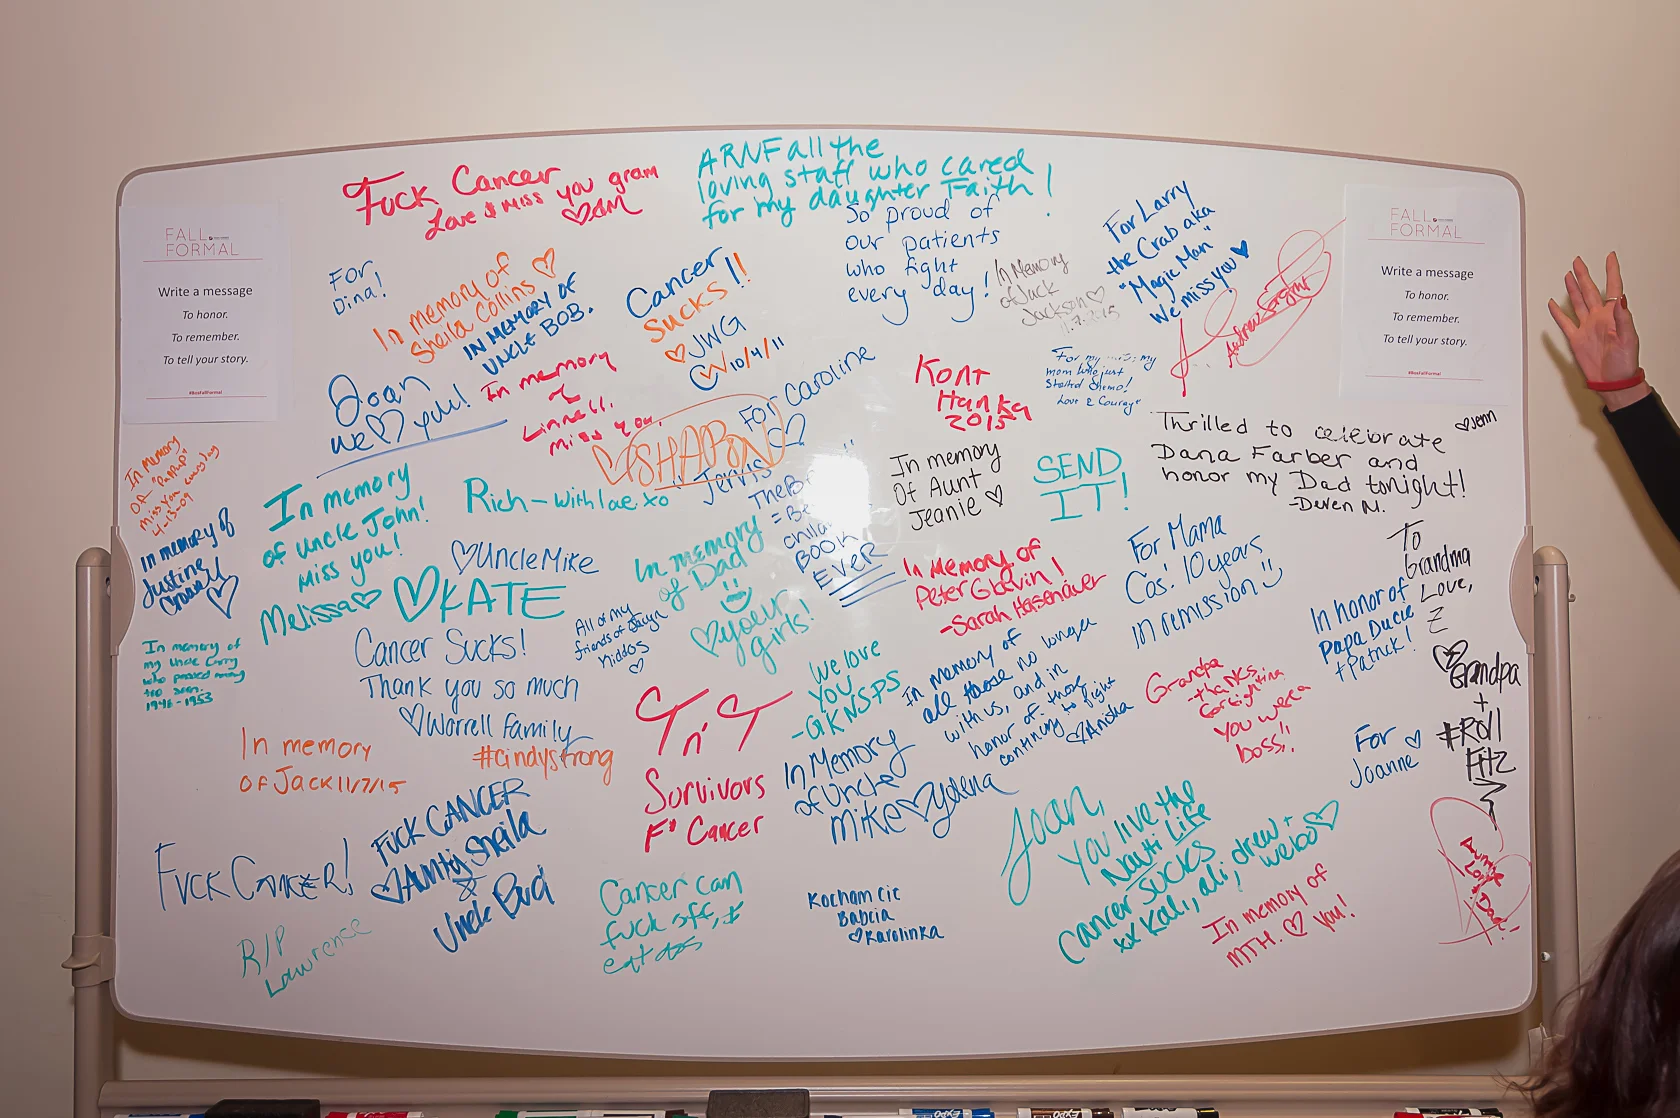 FALL
FORMAL
Write a message
To honor.
To remember.
To tell your story.
#BosFallFormal
Fuck Cancer
Love & Miss you gram
ARNF all the
loving staff who cared
for my daughter Faith!
So proud of
our patients
who fight
every day!
For Larry
the Crab aka
"Magic Man"
We miss you
FALL
FORMAL
Write a message
To honor.
To remember.
To tell your story.
#BosFallFormal
For
Dina!
In memory of
Sheila Collins
IN MEMORY OF
UNCLE BOB.
Cancer
Sucks!!
JWG
10/4/11
In Memory
of Jack
Jackson
11.7.2015
Joan
we you!
In memory
Linnell.
miss you.
SHARON
For Caroline
Jerris
Kont
Hanka
2015
For my
my
mom who just
started chemo!
Love & Courage
Thrilled to celebrate
Dana Farber and
honor my Dad tonight!
-Deven M.
Jenn
In Memory
OF "PaPUP"
miss you everyday
4-13-09
In memory
of uncle John!
Miss you!
Melissa
Rich - with love xo
In memory
Of Aunt
Jeanie
SEND
IT!
In memory of
Justine
Uncle Mike
KATE
In memory
of Dad
your
girls!
The
BOOK
EVER
In Memory of
Peter Glavin!
-Sarah Hasenauer
For Mama
Cos! 10 years
in remission
To
Grandma
Love,
Z
In honor of
Papa Ducie
+ Patrick!
In memory of
my Uncle Corry
who passed away
too soon.
1946-1953
Cancer Sucks!
Thank you so much
Worrell family
#cindystrong
All of my
friends of Jaclyn
kiddos
We love
you
-GKNSPS
In memory of
all those no longer
with us, and in
honor of those
continuing to fight
Anisha
Grandpa
-thanks
for fighting
you were a
boss!!
Grandpa
+
#Roll
Fitz
In memory
Of Jack 11/7/15
T n' T
Survivors
F* Cancer
In Memory
of Uncle
Mike Yolena
For
Joanne
Fuck Cancer!
FUCK CANCER
Aunty Sheila
&
Uncle Bud
Joan,
you live the
Nauti Life
Cancer SUCKS
xx Kali, ali, drew +
webo
R/P
Lawrence
Cancer can
fuck off, &
eat
Kocham Cie
Babcia
Karolinka
In memory of
MTH. you!